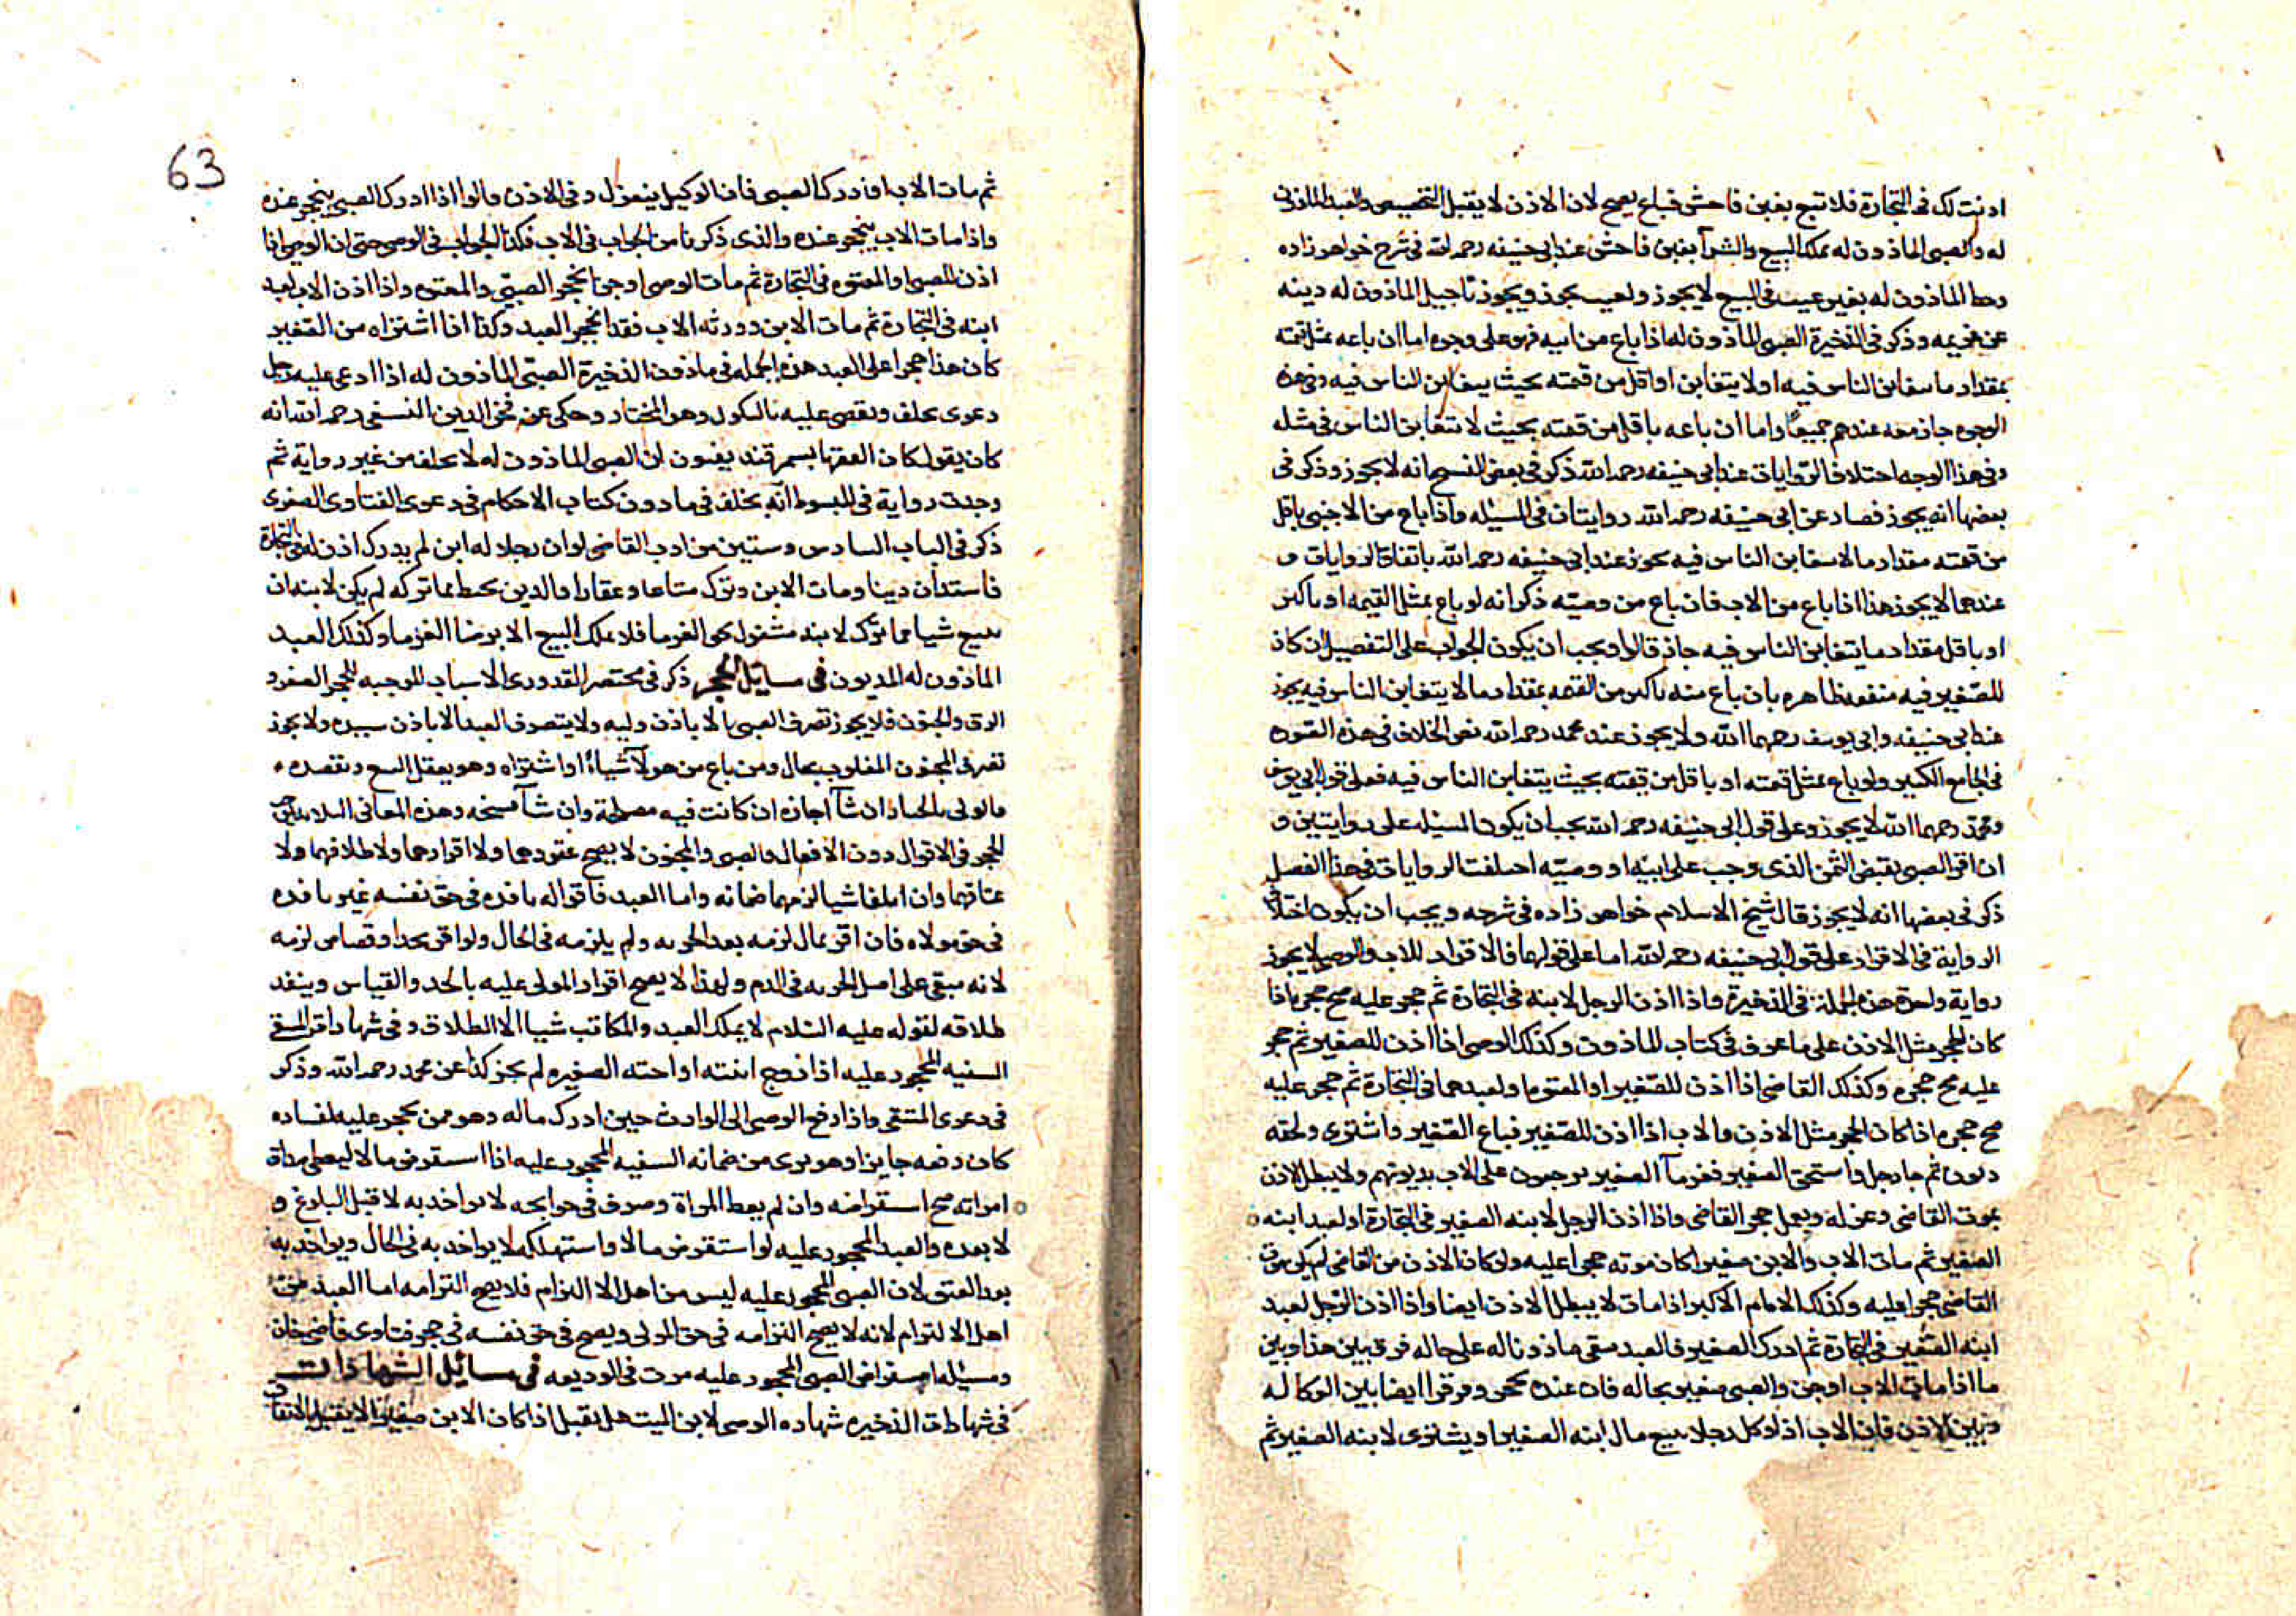 اذنت لك فى التجارة فلا تبع بغبن فاحش فباع يصح لان الاذن لا يقبل التخصيص والعبد الماذون
له والصبى الماذون له يملك البيع والشرآ بغبن فاحش عند ابى حنيفه رحمه الله فى شرح خواهر زاده
وحط الماذون له بغير عيب فى البيع لا يجوز ولعيب يجوز ويجوز تاجيل الماذون له دينه
عن غريمه وذكر فى الذخيرة الصبى الماذون له اذا باع من ابيه فهو على وجوه اما ان باعه بمثل قيمته
بمقدار ما يتغابن الناس فيه او لا يتغابن او اقل من قيمته بحيث يتغابن الناس فيه وفى هذه
الوجوه جاز بيعه عندهم جميعًا واما ان باعه باقل من قيمته بحيث لا يتغابن الناس فى مثله
وفى هذا الوجه اختلاف الروايات عند ابى حنيفه رحمه الله ذكر فى بعض النسخ انه لا يجوز وذكر فى
بعضها انه يجوز فصار عن ابى حنيفه رحمه الله روايتان فى المسئله واذا باع من الاجنبى باقل
من قيمته مقدار ما لا يتغابن الناس فيه يجوز عند ابى حنيفه رحمه الله باتفاق الروايات و
عندهما لا يجوز هذا اذا باع من الاب فان باع من وصيّه ذكر انه لو باع بمثل القيمه او باكثر
او باقل مقدار ما يتغابن الناس فيه جاز قالوا ويجب ان يكون الجواب على التفصيل ان كان
للصّغير فيه منفعة ظاهره بان باع منه باكثر من القيمه بمقدار ما لا يتغابن الناس فيه يجوز
عند ابى حنيفه وابى يوسف رحمهما الله ولا يجوز عند محمد رحمه الله نص الخلاف فى هذه الصّوره
فى الجامع الكبير ولو باع بمثل قيمته او باقل من قيمته بحيث يتغابن الناس فيه فعلى قول ابى يوسف
ومحمّد رحمهما الله لا يجوز وعلى قول ابى حنيفه رحمه الله يجب ان يكون المسئله على روايتين و
ان اقر الصبى بقبض الثمن الذى وجب على ابيه او وصيّه اختلفت الروايات فى هذا الفصل
ذكر فى بعضها انه لا يجوز قال شيخ الاسلام خواهر زاده فى شرحه ويجب ان يكون اختلاف
الرواية فى الاقرار على قول ابى حنيفه رحمه الله اما على قولهما فالاقرار للاب والوصى لا يجوز
رواية واحدة هذه الجملة فى الذخيرة واذا اذن الرجل لابنه فى التجارة ثم حجر عليه صح حجره اذا
كان الحجر مثل الاذن على ما عرف فى كتاب الماذون وكذلك الوصى اذا اذن للصغير ثم حجر
عليه صح حجره وكذلك القاضى اذا اذن للصّغير او المعتوه او لعبدهما فى التجارة ثم حجر عليه
صح حجره اذا كان الحجر مثل الاذن والاب اذا اذن للصّغير فباع الصّغير واشترى ولحقه
ديون ثم جا رجل واستحق الصغير فغرمآ الصغير يرجعون على الاب بديونهم ولا يبطل الاذن
بموت القاضى وعزله ويعمل حجر القاضى واذا اذن الرجل لابنه الصغير فى التجارة او لعبد ابنه
الصغير ثم مات الاب والابن صغير كان موته حجرا عليه ولو كان الاذن من القاضى لم يكن موت
القاضى حجرا عليه وكذلك الامام الاكبر اذا مات لا يبطل الاذن ايضا واذا اذن الرّجل لعبد
ابنه الصّغير فى التجارة ثم ادرك الصغير فالعبد يبقى ماذونا له على حاله فرق بين هذا وبين
ما اذا مات الاب او جن والصبى صغير بحاله فان عنده يحجر وفرقوا ايضا بين الوكاله
وبين الاذن فان الاب اذا وكل رجلا ببيع مال ابنه الصغير او يشترى لابنه الصغير ثم
63
ثم مات الاب او ادرك الصبى فان الوكيل ينعزل وفى الاذن قالوا اذا ادرك الصبى ينحجر عنده
واذا مات الاب ينحجر عنده والذى ذكرنا من الجواب فى الاب فكذا الجواب فى الوصى حتى ان الوصى اذا
اذن للصبى او المعتوه فى التجارة ثم مات الوصى او جن انحجر الصبىّ والمعتوه واذا اذن الاب لعبد
ابنه فى التجارة ثم مات الابن وورثه الاب فقد انحجر العبد وكذا اذا اشتراه من الصّغير
كان هذا حجرا على العبد هذه الجمله فى ماذون الذخيرة الصبىّ الماذون له اذا ادعى عليه رجل
دعوى يحلف ويقضى عليه بالنكول وهو المختار وحكى عن فخر الدين النسفى رحمه الله انه
كان يقول كان الفقها بسمرقند يفتون ان الصبى الماذون له لا يحلف من غير رواية ثم
وجدت رواية فى المبسوط انّه يحلف فى ماذون كتاب الاحكام فى دعوى الفتاوى الصغرى
ذكر فى الباب السادس وستين من ادب القاضى لو ان رجلا له ابن لم يدرك اذن له فى التجارة
فاستدان دينا ومات الابن وترك متاعا وعقارا والدين يحيط بما تركه لم يكن لابنه ان
يبيع شيا مما ترك لابنه مشغول بحق الغرما فلا يملك البيع الا برضا الغرما وكذلك العبد
الماذون له المديون فى مسايل الحجر ذكر فى مختصر القدورى الاسباب الموجبه للحجر الصغر و
الرق والجنون فلا يجوز تصرف الصبى الا باذن وليه ولا يتصرف العبد الا باذن سيده ولا يجوز
تصرف المجنون المغلوب بحال ومن باع من هولآ شيأ او اشتراه وهو يعقل البيع ويقصده
فالولى بالخيار ان شآ اجازه ان كانت فيه مصلحة وان شآ فسخه وهذه المعانى الثلاثة توجب
الحجر فى الاقوال دون الافعال والصبى والمجنون لا يصح عقودهما ولا اقرارهما ولا طلاقهما ولا
عتاقهما وان اتلفا شيا لزمهما ضمانه واما العبد فاقواله نافذه فى حق نفسه غير نافذه
فى حق مولاه فان اقر بمال لزمه بعد الحريه ولم يلزمه فى الحال ولو اقر بحد او قصاص لزمه
لانه مبقى على اصل الحريه فى الدم ولهذا لا يصح اقرار المولى عليه بالحد والقياس وينفذ
طلاقه لقوله عليه السّلام لا يملك العبد والمكاتب شيا الا الطلاق وفى شهادات
السفيه المحجور عليه اذا زوج ابنته او اخته الصغيره لم يجز كذا عن محمد رحمه الله وذكر
فى دعوى المنتقى واذا دفع الوصى الى الوارث حين ادرك ماله وهو ممن يحجر عليه لفساده
كان دفعه جايزا وهو برى من ضمانه السفيه المحجور عليه اذا استقرض مالا ليعطى مراة
امراته صح استقراضه وان لم يعط المراة وصرف فى حوايجه لا يواخذ به لا قبل البلوغ و
لا بعده والعبد المحجور عليه لو استقرض مالا واستهلكه لا يواخذ به فى الحال ويواخذ به
بعد العتق لان الصبى المحجور عليه ليس من اهل الالتزام فلا يصح التزامه اما العبد من
اهل الالتزام لانه لا يصح التزامه فى حق المولى ويصح فى حق نفسه فى حجر فتاوى قاضى خان
ومسئله استقراض الصبى المحجور عليه مرت فى الوديعه فى مسائل الشهادات
فى شهادات الذخيره شهاده الوصى لابن الميت هل يقبل اذا كان الابن صغيرا لا يقبل